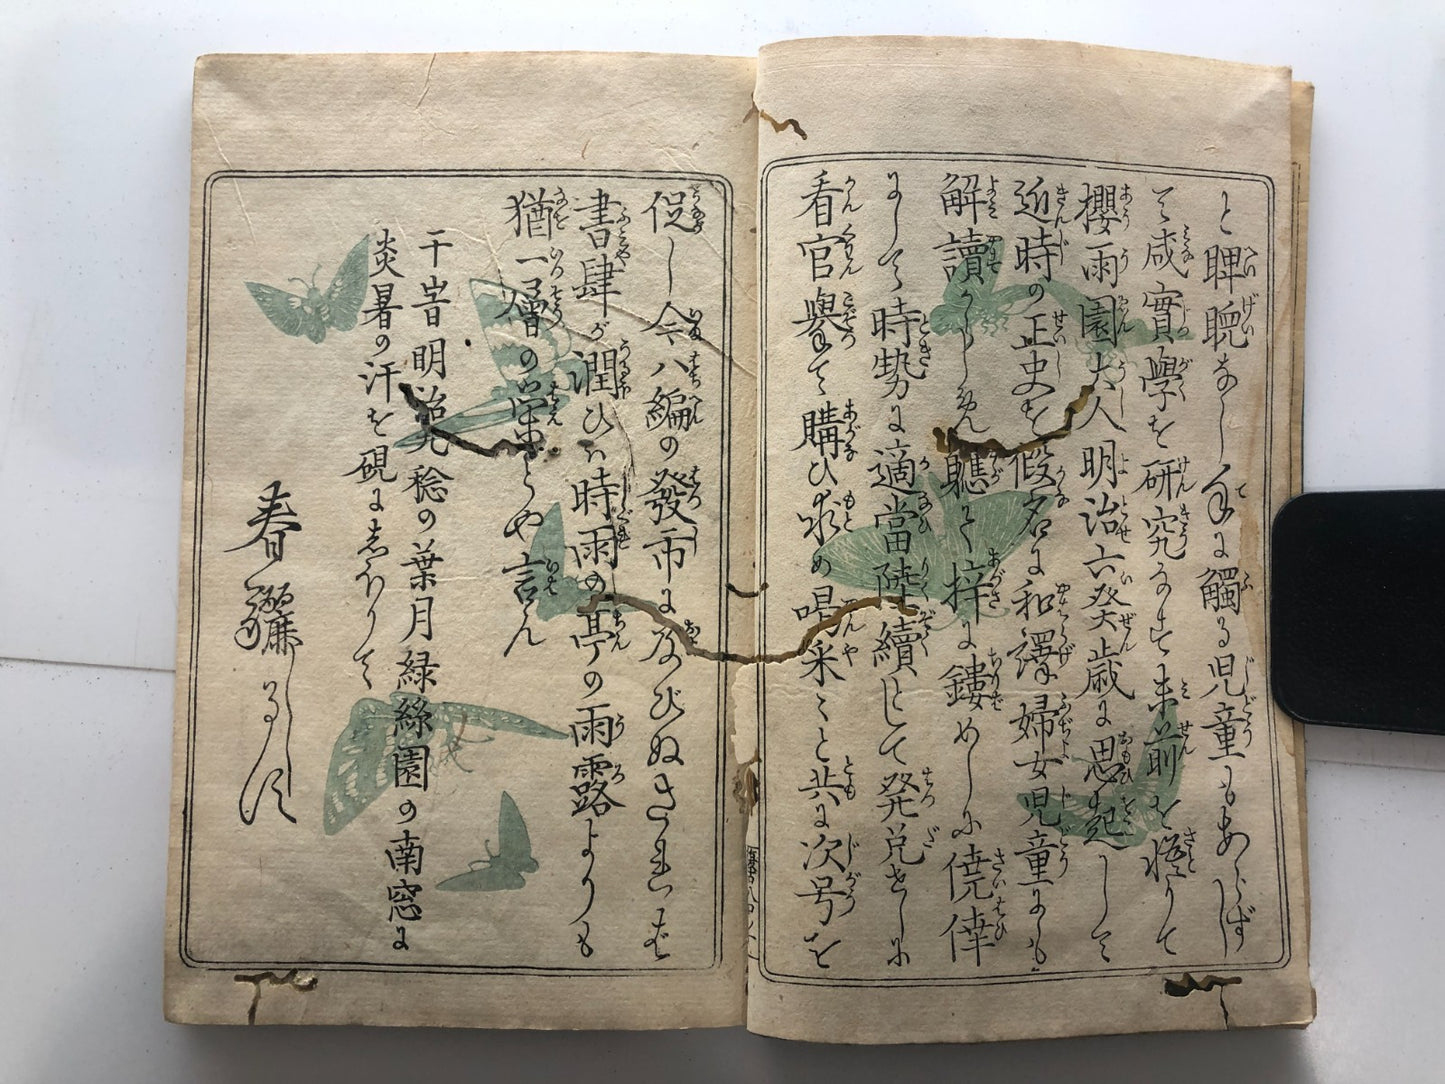 と睥睨なし手に觸る児童もあらず
て咸實學を研究なすは未前を悟りて
櫻雨園大人明治六癸歳に思起して
近時の正史を假名に和譯婦女児童にも
解讀からしめ聽て梓に鏤めしに僥倖
にして時勢に適當陸續として発兌せしに
看官擧て購ひ求め喝采々と共に次号を
促し今八編の發市に及びぬされば
書肆が潤ひハ時雨の亭の雨露よりも
猶一層の榮とや言ん
干旹明治九稔の葉月緑絲園の南窓に
炎暑の汗を硯にしぼりて
春驪しるす